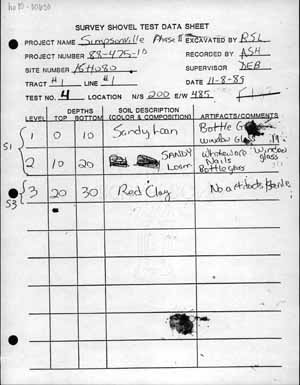 SURVEY SHOVEL TEST DATA SHEET
PROJECT NAME Simpsonville Phase II EXCAVATED BY RSL
PROJECT NUMBER 88-475-10 RECORDED BY ASH
SITE NUMBER SUPERVISOR DEB
TRACT #1 LINE #1 DATE 11-8-89
TEST NO. 4 LOCATION N/S 200 E/W 485
LEVEL DEPTHS TOP BOTTOM SOIL DESCRIPTION (COLOR & COMPOSITION) ARTIFACTS/COMMENTS
S1
1 0 10 Sandy Loan Bottle
Window
2 10 20 SANDY Loam Whiteware Window glass
Nails
Bottle glass
S3
3 20 30 Red Clay No artifacts